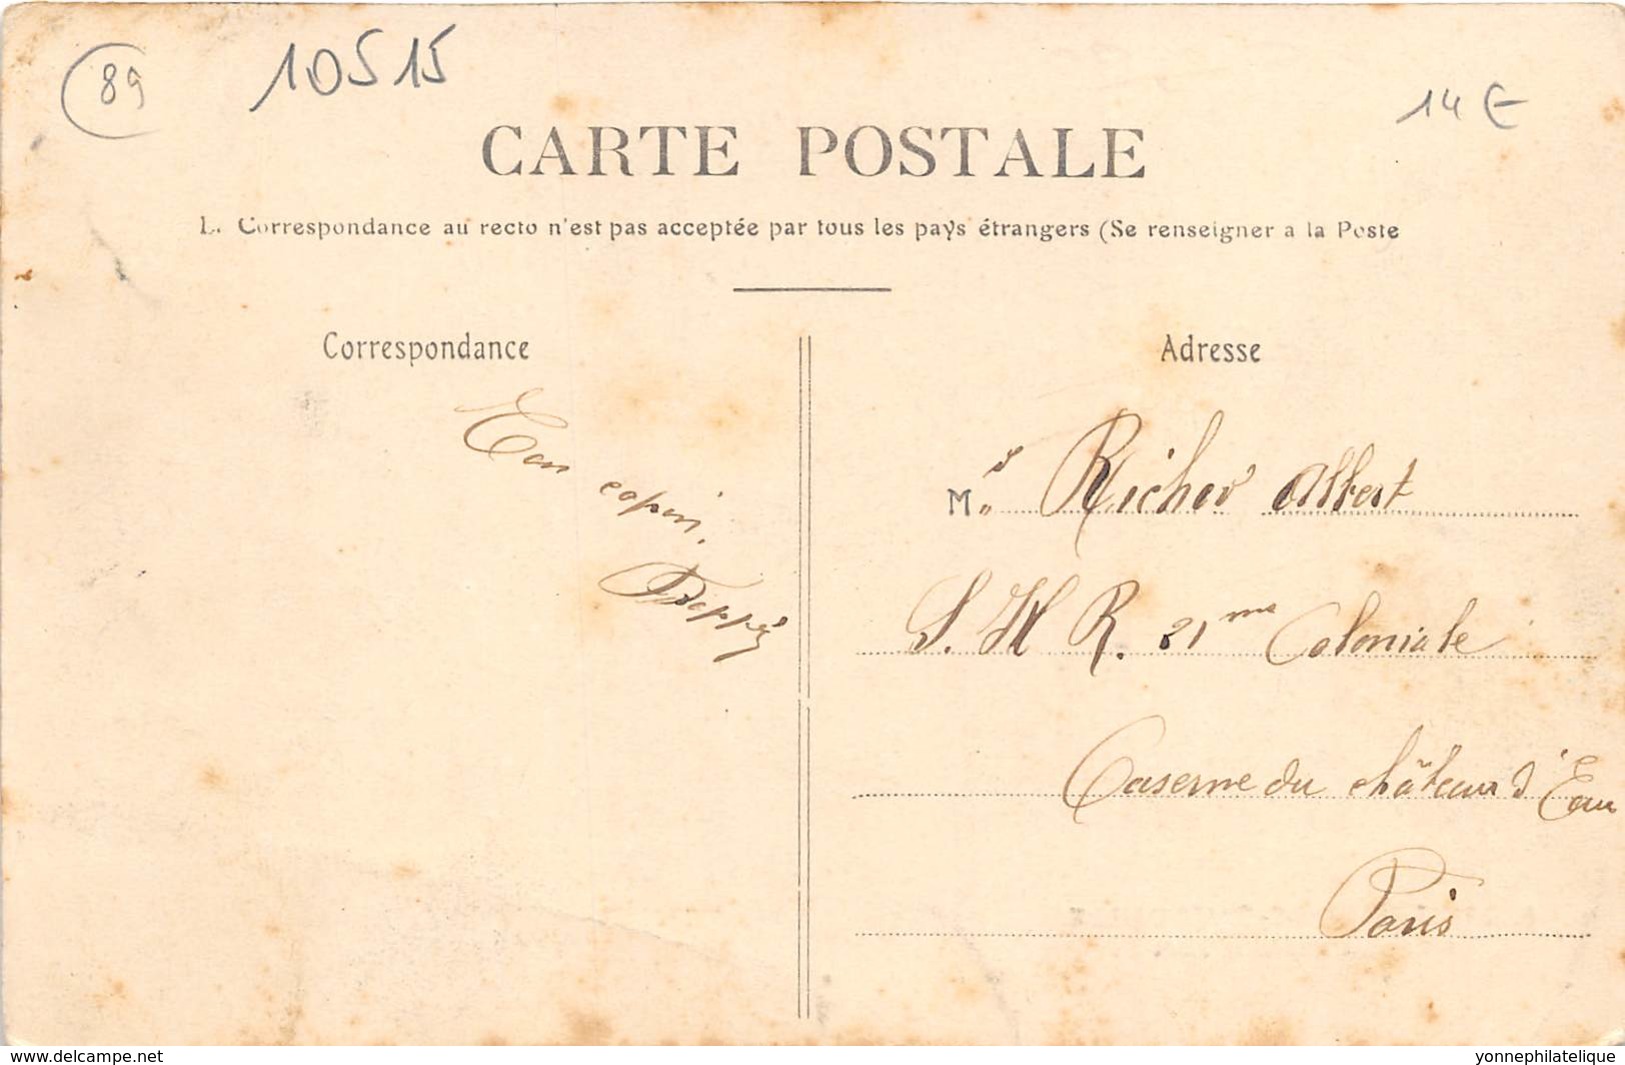 89
10515
14 €
CARTE POSTALE
La Correspondance au recto n'est pas acceptée par tous les pays étrangers (Se renseigner a la Poste
Correspondance
Adresse
Ton copin.
Mr Albert
S. H R. 21me Coloniale
Caserne du château d'Eau
Paris
www.delcampe.net
yonnephilatelique